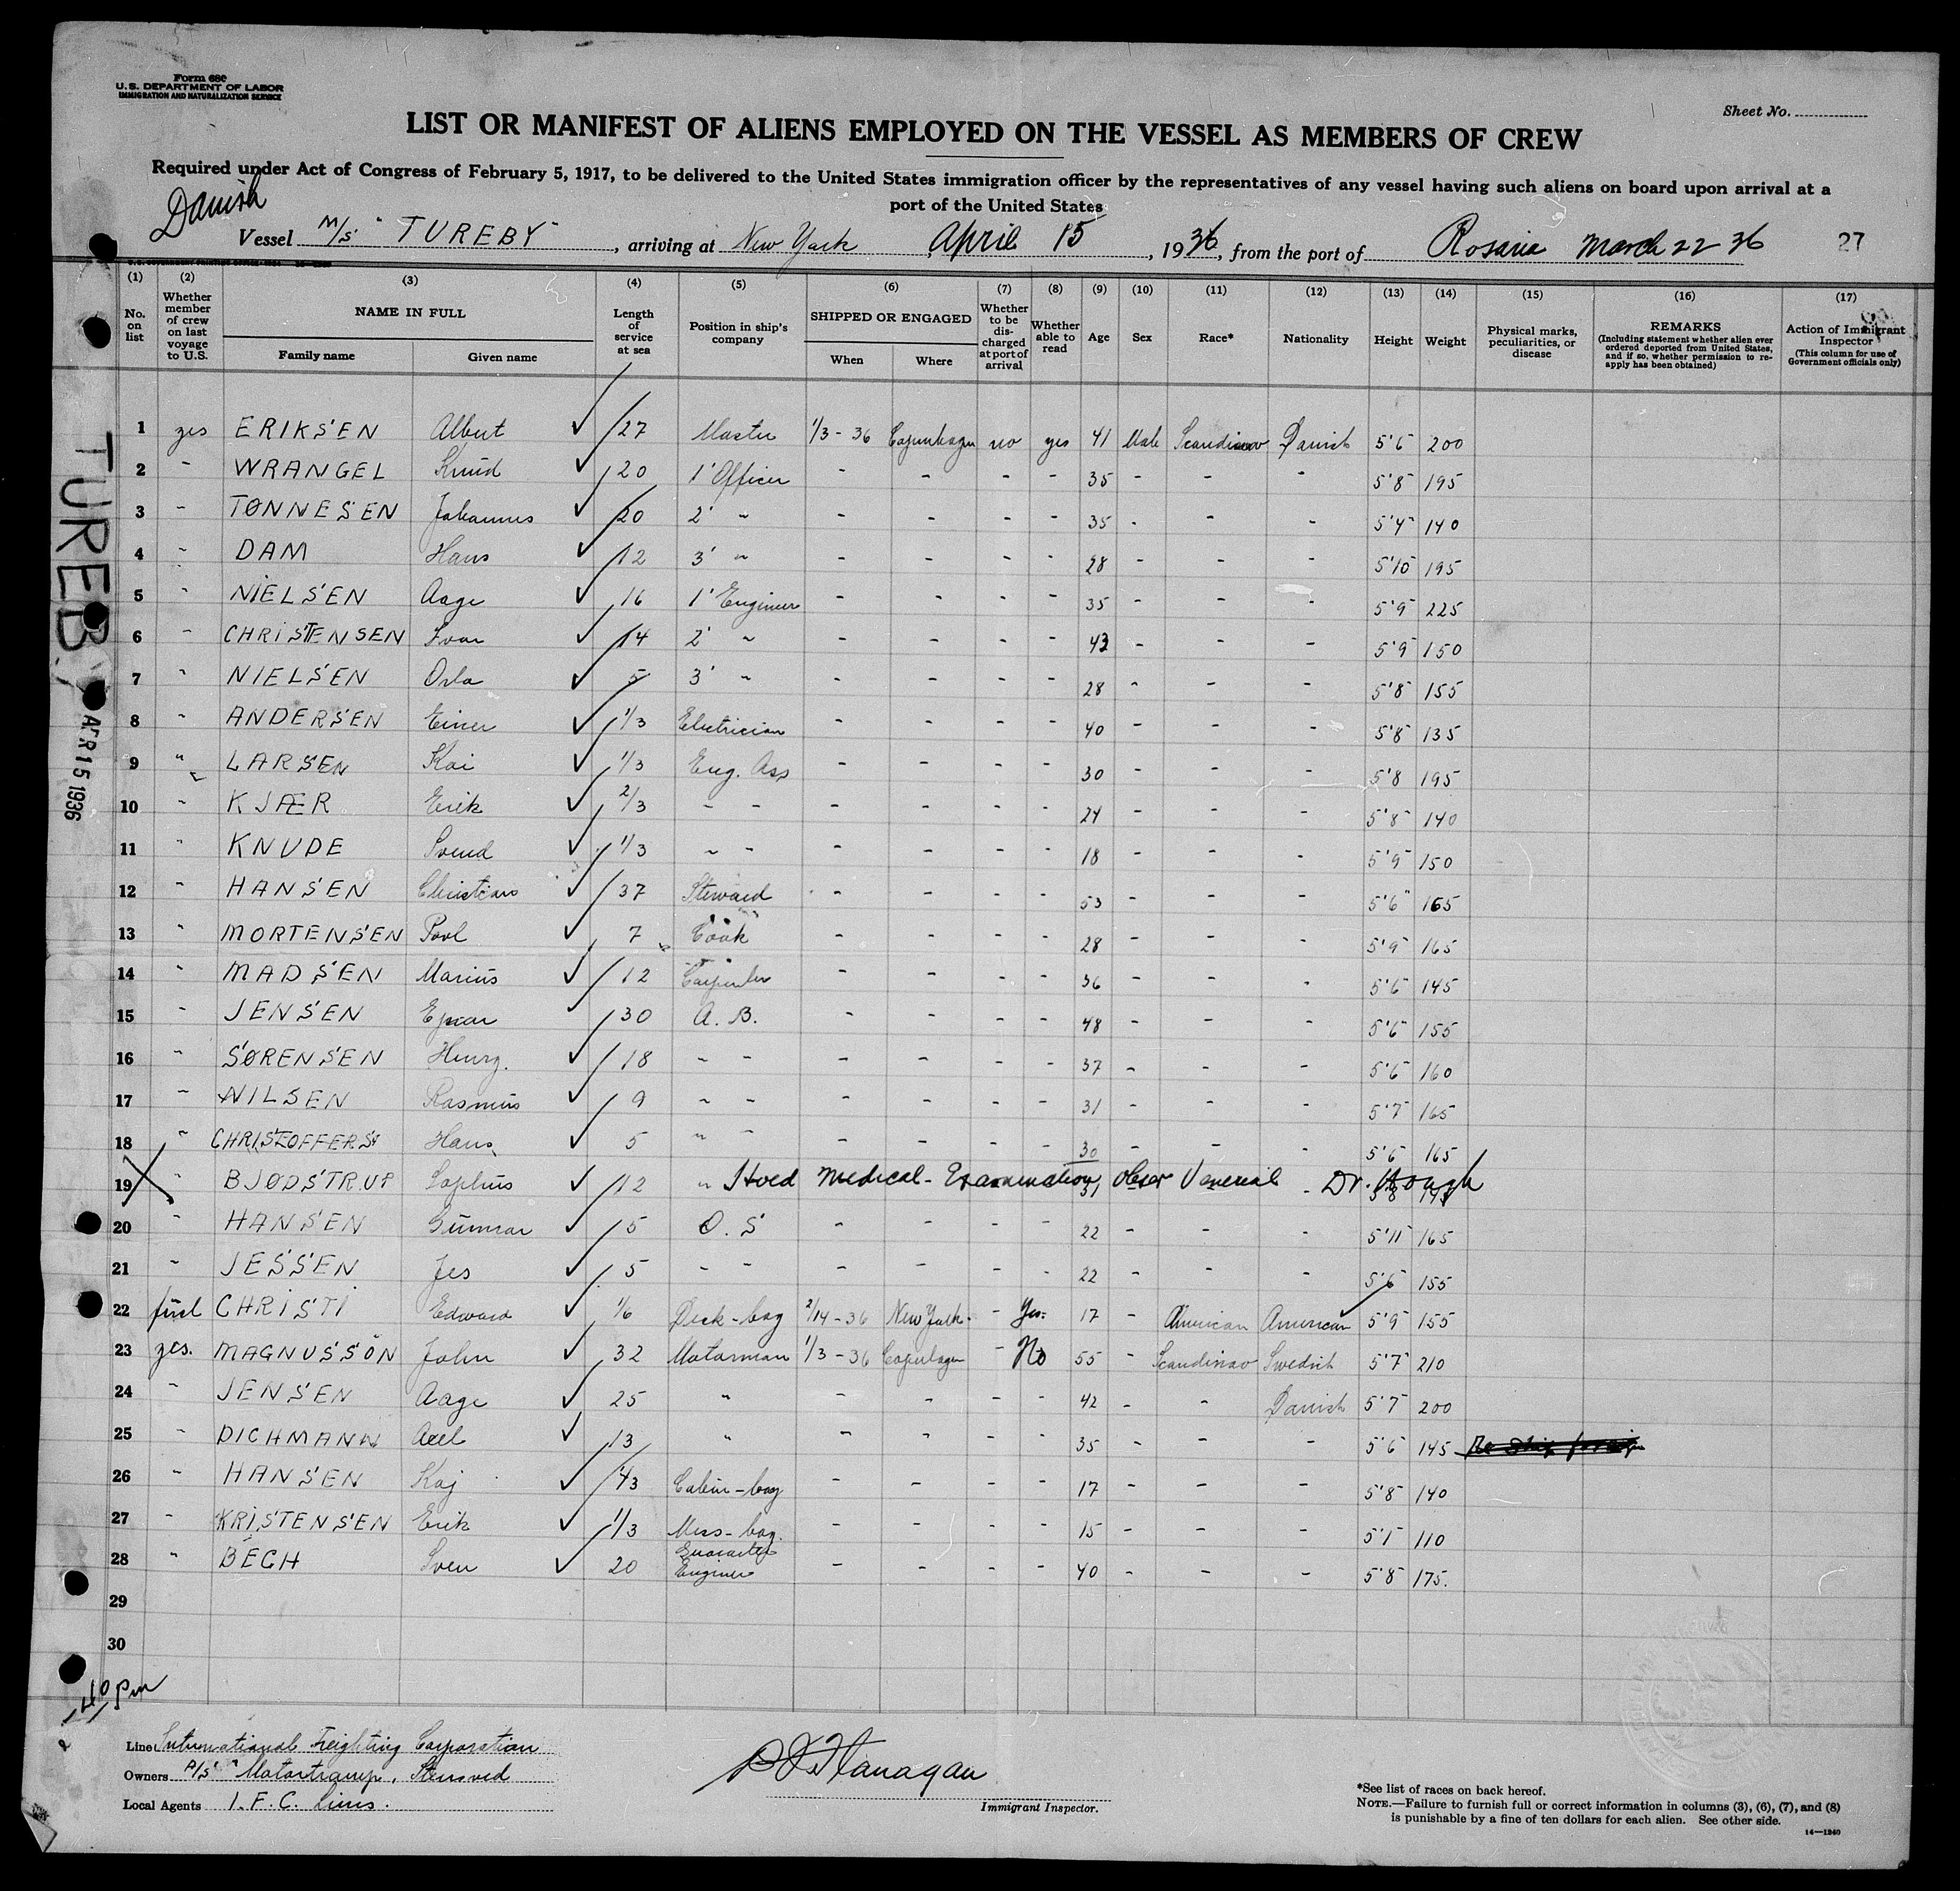 Form 680
U.S. DEPARTMENT OF LABOR
IMMIGRATION AND NATURALIZATION SERVICE
Sheet No.
LIST OR MANIFEST OF ALIENS EMPLOYED ON THE VESSEL AS MEMBERS OF CREW
Required under Act of Congress of February 5, 1917, to be delivered to the United States immigration officer by the representatives of any vessel having such aliens on board upon arrival at a
port of the United States
Danish
Vessel M/S "TUREBY", arriving at New York April 15, 1936, from the port of Rosario March 22 36 27
(1) No. on list
(2) Whether member of crew on last voyage to U.S.
(3) NAME IN FULL Family name Given name
(4) Length of service at sea
(5) Position in ship's company
(6) SHIPPED OR ENGAGED When Where
(7) Whether to be discharged at port of arrival
(8) Whether able to read
(9) Age
(10) Sex
(11) Race*
(12) Nationality
(13) Height
(14) Weight
(15) Physical marks, peculiarities, or disease
(16) REMARKS (Including statement whether alien ever ordered deported from United States, and if so, whether permission to reapply has been obtained)
(17) Action of Immigrant Inspector (This column for use of Government officials only)
1 yes ERIKSEN Albert ✓ 27 Master 1/3-36 Copenhagen no yes 41 Male Scandinav Danish 5'6" 200
2 " WRANGEL Knud ✓ 20 1' Officer - - - - 35 - - " 5'8" 195
3 " TØNNESEN Johannes ✓ 20 2' " - - - - 35 - - - 5'4" 140
4 " DAM Hans ✓ 12 3' " - - - - 28 - - - 5'10" 195
5 " NIELSEN Aage ✓ 16 1' Engineer - - - - 35 - - - 5'9" 225
6 " CHRISTENSEN Ivar ✓ 14 2' " - - - - 43 - - - 5'9" 150
7 " NIELSEN Orla ✓ 5 3' " - - - - 28 - - - 5'8" 155
8 " ANDERSEN Einer ✓ 1/3 Electrician - - - - 40 - - - 5'8" 135
9 " LARSEN Kai ✓ 1/3 Eng. Ass - - - - 30 - - - 5'8 195
10 " KJÆR Erik ✓ 2/3 - - - - - - 24 - - - 5'8" 140
11 " KNUDE Svend ✓ 1/3 - - - - - - 18 - - - 5'9" 150
12 " HANSEN Christians ✓ 37 Steward - - - - 53 - - - 5'6" 165
13 " MORTENSEN Povl ✓ 7 Cook - - - - 28 - - - 5'9" 165
14 " MADSEN Marius ✓ 12 Carpenter - - - - 36 - - - 5'6" 145
15 " JENSEN Ejnar 30 A. B. - - - - 48 - - - 5'6" 155
16 " SØRENSEN Henry. ✓ 18 - - - - - - 37 - - - 5'6" 160
17 " NILSEN Rasmus ✓ 9 - - - - - - 31 - - - 5'7" 165
18 " Hans ✓ 5 " - - - - - 30 - - - 5'6" 165
19 " BJØDSTRUP Sophus ✓ 12 " Hoed Medical - Examination Obser Venereal - Dr. Hough
20 " HANSEN Gunnar ✓ 5 O. S - - - - 22 - - - 5'11" 165
21 " JESSEN Jes ✓ 5 - - - - - - 22 - - - 5'6" 155
22 first CHRISTI Edward ✓ 1/6 Deck-boy 2/14-36 New York. - Yes. 17 - American American 5'9" 155
23 yes. MAGNUSSÖN John ✓ 32 Motorman 1/3-36 Copenhagen - No 55 - Scandinav Swedish 5'7" 210
24 " JENSEN Aage ✓ 25 " - - - - 42 - - Danish 5'7" 200
25 " DICHMANN Axel ✓ 13 " - - - - 35 - - - 5'6" 145
26 " HANSEN Kaj ✓ 1/3 Cabin-boy - - - - 17 - - - 5'8" 140
27 " KRISTENSEN Erik ✓ 1/3 Mess-boy. - - - - 15 - - - 5'1" 110
28 " BECH Sven ✓ 20 Engineer - - - - 40 - - - 5'8" 175.
29
30
TUREBY
APR 15 1936
40 Pm
Line International Freighting Corporation
Owners A/S "Motortramp, Stensved
Local Agents I. F. C. Lines.
Flanagan
Immigrant Inspector.
*See list of races on back hereof.
NOTE.—Failure to furnish full or correct information in columns (3), (6), (7), and (8)
is punishable by a fine of ten dollars for each alien. See other side.
14—1240